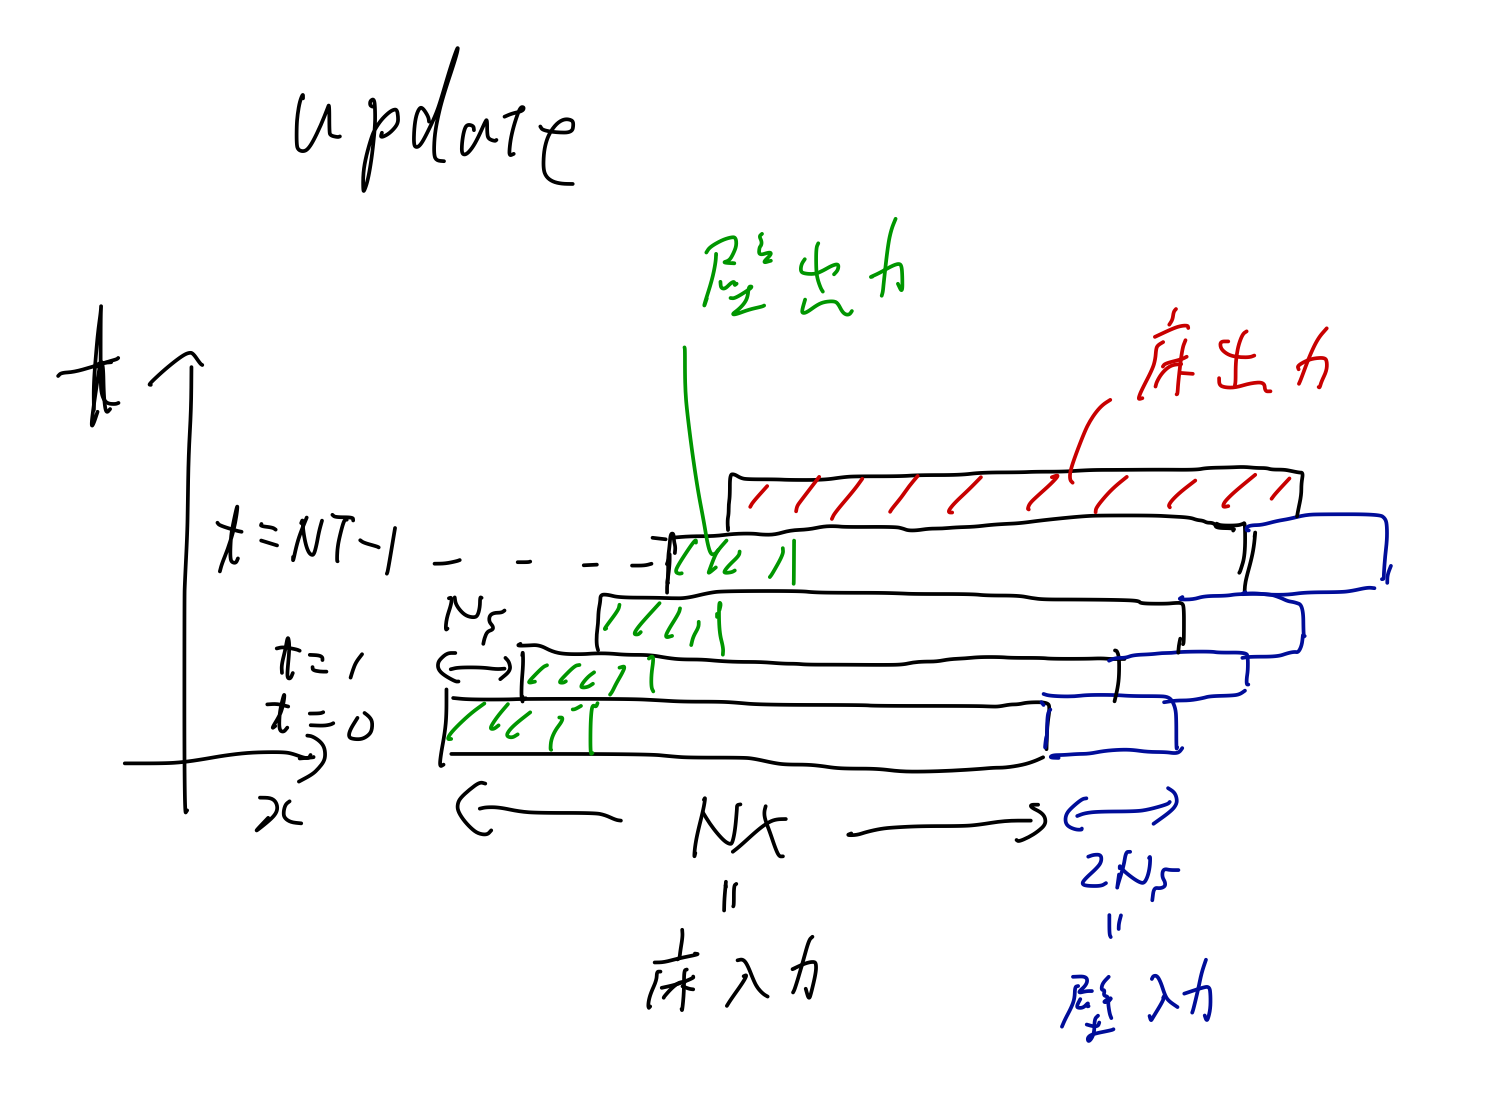 update
壁出力
床出力
t
t=NT-1
Ns
t=1
t=0
x
NX
2Ns
=
=
床入力
壁入力